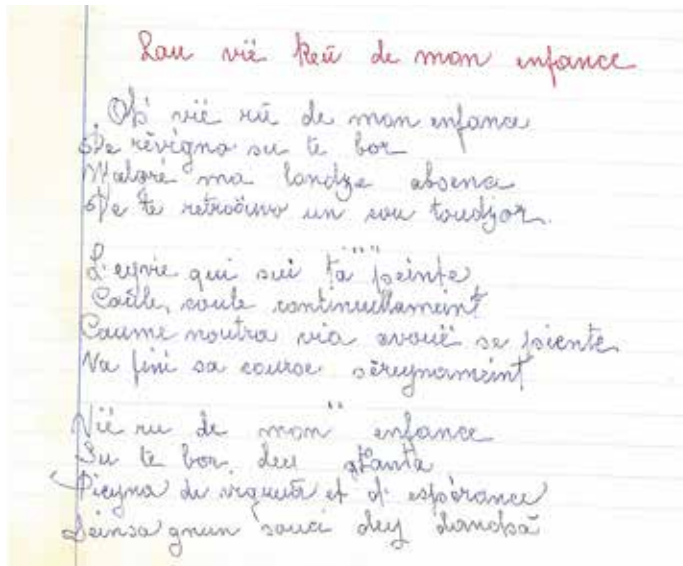 Lau vië Reü de mon enfance
Oh vië rü de mon enfance
De rèvigno su te bor
Malgré ma londze absence
De te retroûvo un cou toudzor.
L'eyvie qui sui ta peinte
Caûle, coule continuellameint
Caume noutra via avouë se piente
Va fini sa course sèreynameint
Vië ru de mon enfance
Su te bor deu
Pieyna de vigueur et d'espèrance
Seinsa gnun souci dey